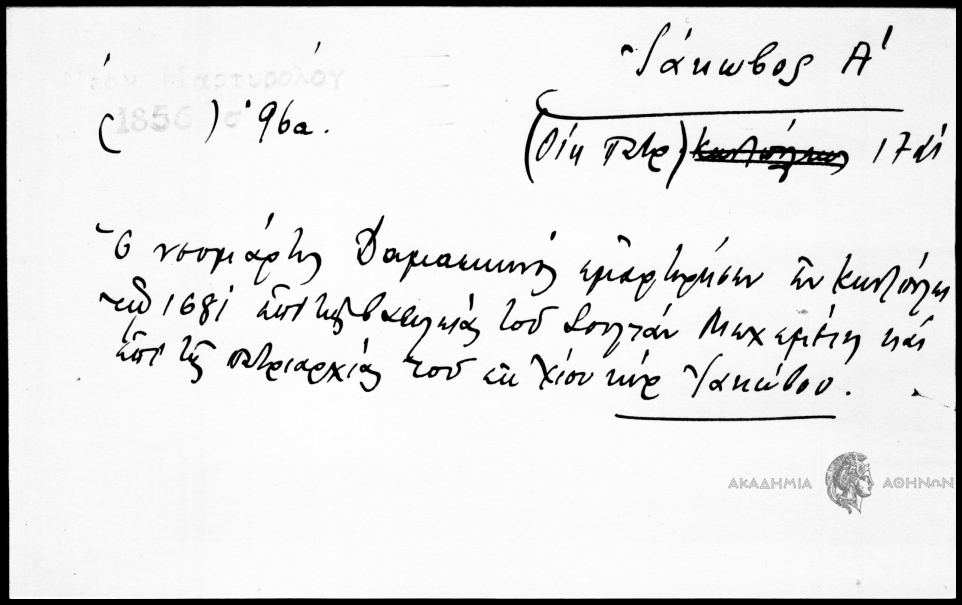 Ἰάκωβος Α΄
Νέον Μαρτυρολογ
(1856) σ 96α.
(Οἰκ Πατρ) Κωνσ/πόλεως 17 αἰ
Ὁ νεομάρτυς Δαμασκηνός ἐμαρτύρησεν ἐν Κωνσ/πόλει
τῷ 1681 ἐπί τῆς βασιλείας τοῦ Σουλτάν Μεχεμέτη καί
ἐπί τῆς πατριαρχίας τοῦ ἐκ Χίου κύρ Ἰακώβου.
ΑΚΑΔΗΜΙΑ ΑΘΗΝΩΝ